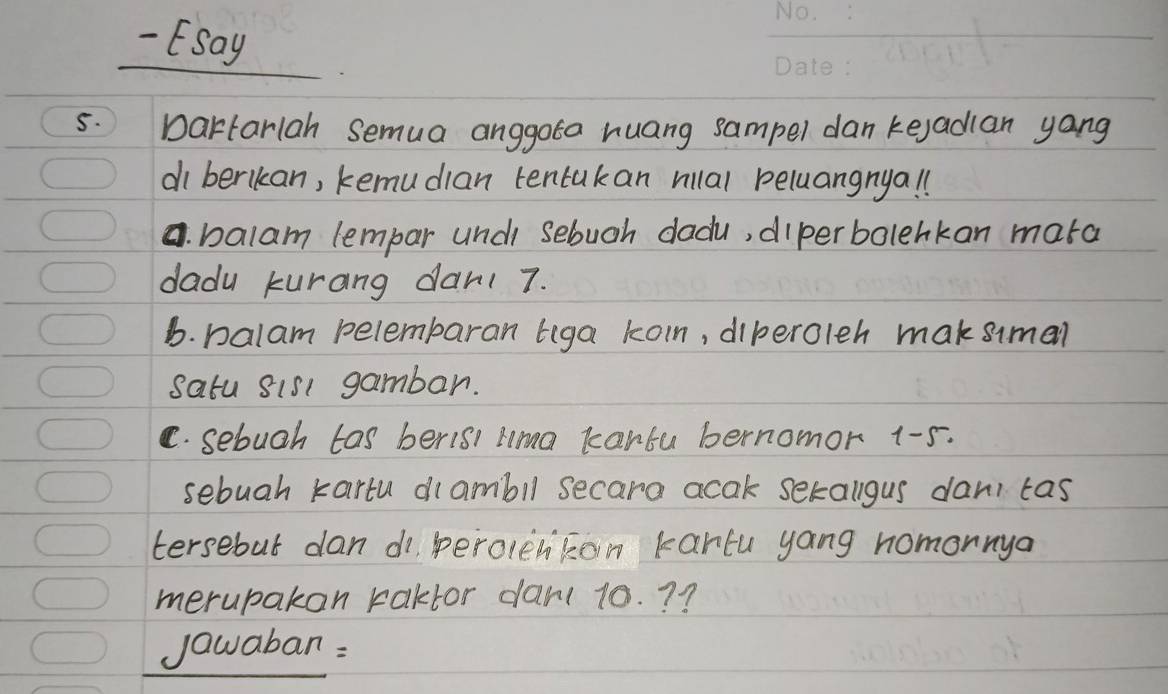 No. :
Date :
- Esay
5. Daftarlah semua anggota ruang sampel dan kejadian yang
di berikan, kemudian tentukan nilai peluangnya!!
a. Dalam lempar undi sebuah dadu, diperbolehkan mata
dadu kurang dari 7.
b. Dalam pelemparan tiga koin, diperoleh maksimal
satu sisi gambar.
c. sebuah tas berisi lima kartu bernomor 1-5.
sebuah kartu diambil secara acak sekaligus dari tas
tersebut dan di perolehkan kartu yang nomornya
merupakan faktor dari 10. ??
Jawaban =